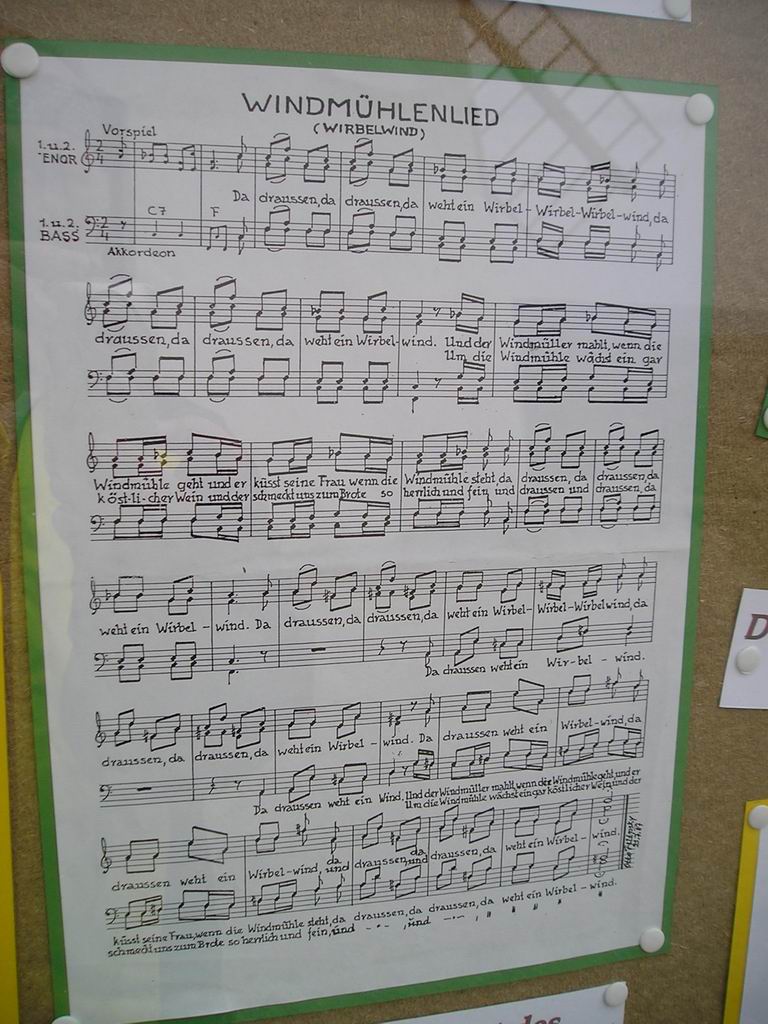 WINDMÜHLENLIED
(WIRBELWIND)
Vorspiel
1. u. 2.
TENOR
Da draussen, da draussen, da weht ein Wirbel-Wirbel-Wirbel-wind, da
C7 F
1. u. 2.
BASS
Akkordeon
draussen, da draussen, da weht ein Wirbel-wind. Und der Windmüller mahlt, wenn die
Um die Windmühle wächst ein gar
Windmühle geht und er küsst seine Frau wenn die Windmühle steht, da draussen, da draussen, da
köst-li-cher Wein und der schmeckt uns zum Brote so herrlich und fein, und draussen und draussen, da
weht ein Wirbel-wind. Da draussen, da draussen, da weht ein Wirbel-Wirbel-Wirbelwind, da
Da draussen weht ein Wir-bel-wind.
draussen, da draussen, da weht ein Wirbel-wind. Da draussen weht ein Wirbel-wind, da
Da draussen weht ein Wind. Und der Windmüller mahlt wenn die Windmühle geht und er
Um die Windmühle wächst ein gar köstlicher Wein und der
draussen weht ein Wirbel-wind, da draussen, da draussen, da weht ein Wirbel-wind.
und und
küsst seine Frau, wenn die Windmühle steht, da draussen, da draussen, da weht ein Wirbel-wind.
schmeckt uns zum Brote so herrlich und fein, und -"- und -"- " " " "
D
des